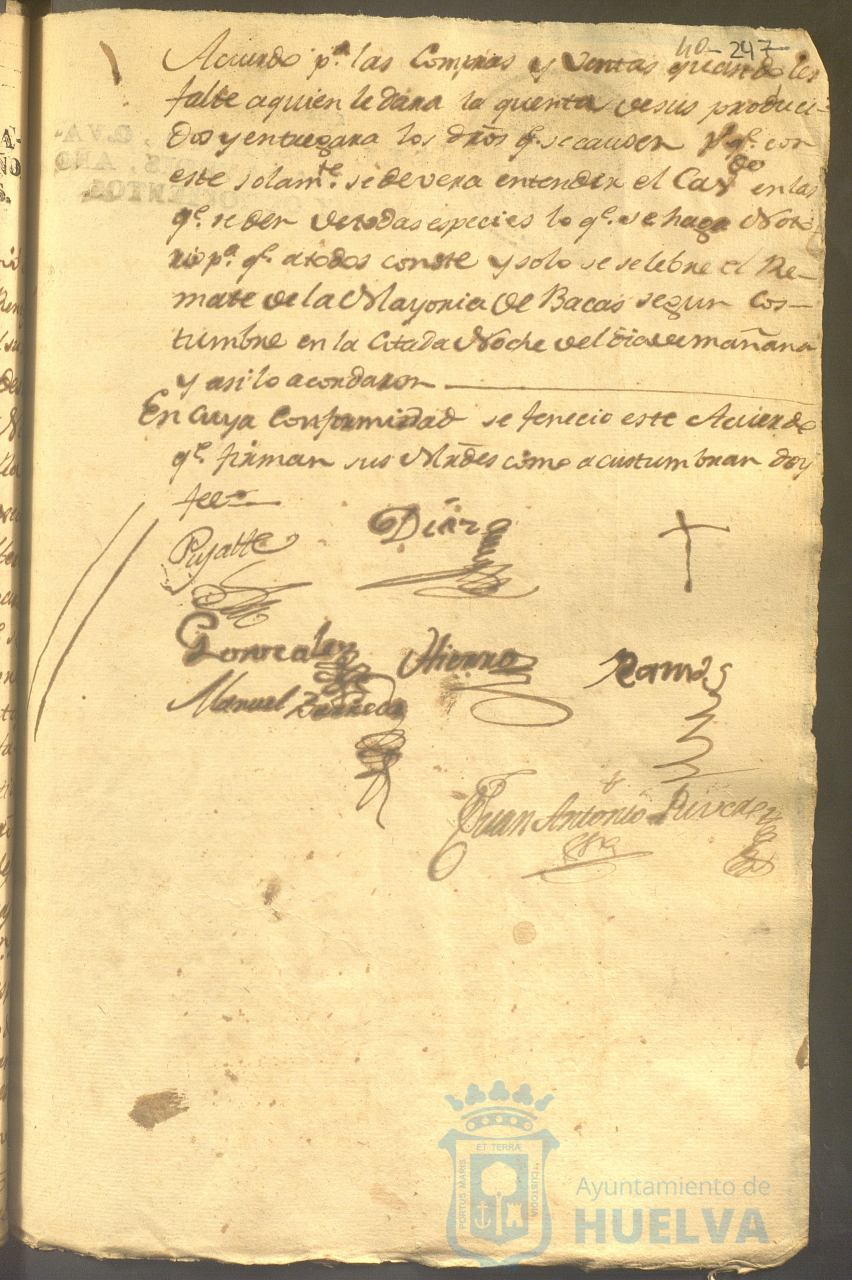 40- 247-
Acuerdo pª. las Compras y Ventas quando les
falte aquien le dara la quenta desus produci-
dos y entregara los dros qe. se causen pr. qe. con
este solamte. se devera entender el Cargdo en las
qe. se den detodas especies lo qe. se haga Noto-
rio pª. qe. atodos conste y solo se selebre el Re-
mate de la Mayoria de Bacas segun Cos-
tumbre en la Citada Noche del dia de mañana
y asi lo acordaron
En cuya Conformidad se fenecio este Acuerdo
qe. firman sus Mrdes como acustumbran doy
fee
Pujatte Diaz
Gonzalez Hierro Ramos
Manuel Barreda
Juan Antonio
ET TERRÆ
PORTUS MARIS
CUSTODIA
Ayuntamiento de
HUELVA